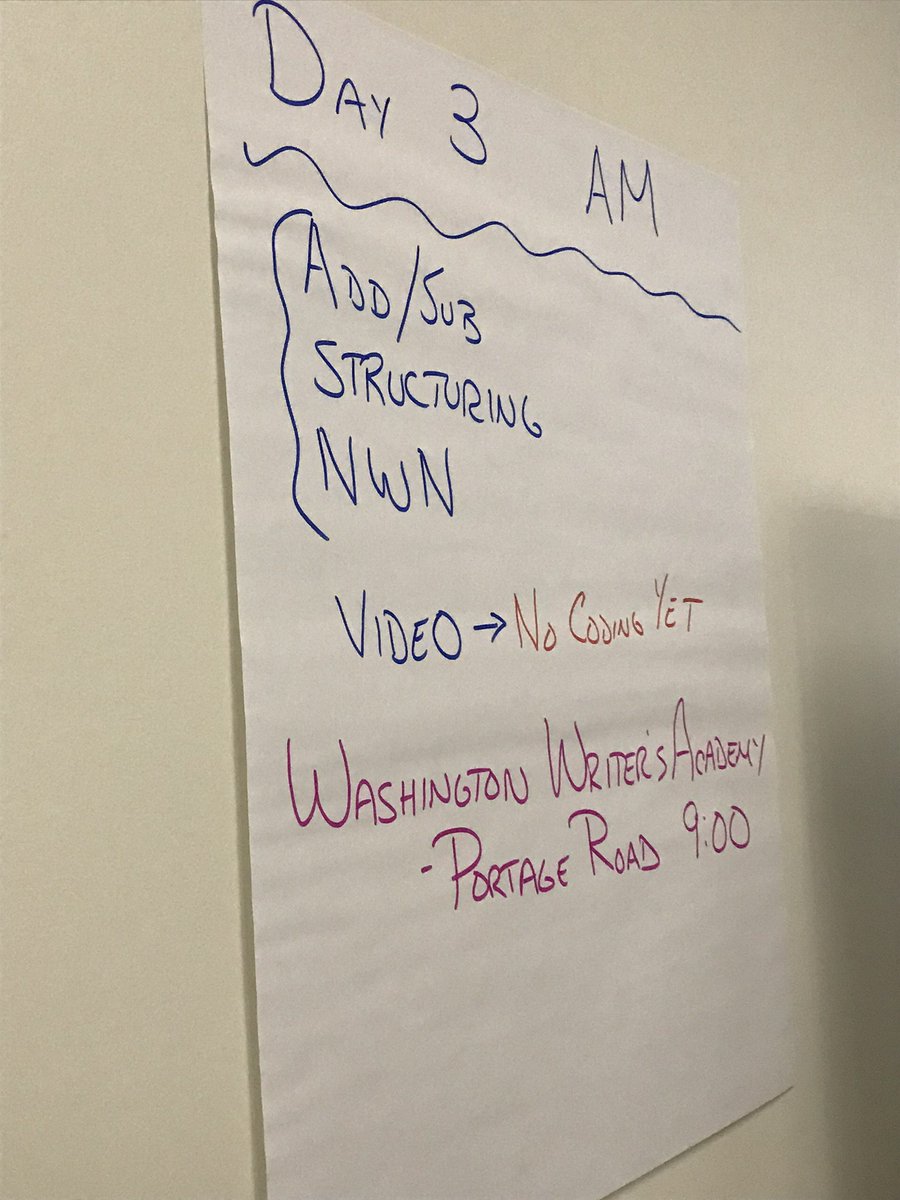 DAY 3 AM
ADD/SUB
STRUCTURING
NWN
VIDEO → NO CODING YET
WASHINGTON WRITER'S ACADEMY
-PORTAGE ROAD 9:00